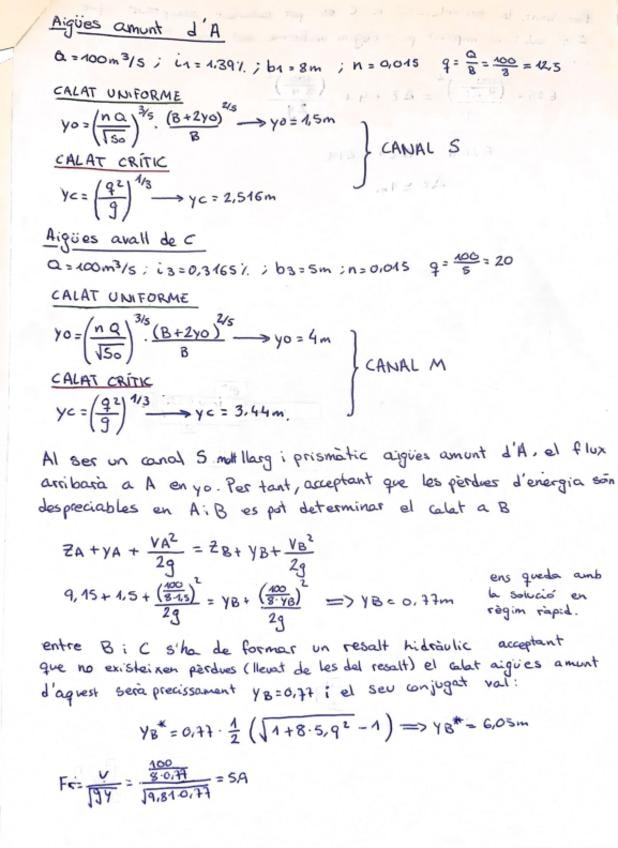 Aigües amunt d'A
Q=100m³/s ; i1=1,39% ; b1=8m ; n=0,015 q=Q/B=100/8=12,5
CALAT UNIFORME
yo=(nQ/√So)^3/5 · (B+2yo)^2/5/B → yo=1,5m
CANAL S
CALAT CRÍTIC
yc=(q²/g)^1/3 → yc=2,516m
Aigües avall de C
Q=100m³/s ; i3=0,3165% ; b3=5m ; n=0,015 q=100/5=20
CALAT UNIFORME
yo=(nQ/√So)^3/5 · (B+2yo)^2/5/B → yo=4m
CANAL M
CALAT CRÍTIC
yc=(q²/g)^1/3 → yc=3.44m.
Al ser un canal S molt llarg i prismàtic aigües amunt d'A, el flux
arribarà a A en yo. Per tant, acceptant que les pèrdues d'energia són
despreciables en A i B es pot determinar el calat a B
ZA+yA+VA²/2g = ZB+yB+VB²/2g
9,15+1,5+(100/8·1,5)²/2g = yB+(100/8·yB)²/2g ⇒ yB=0,77m
ens queda amb
la solució en
règim ràpid.
entre B i C s'ha de formar un resalt hidràulic acceptant
que no existeixen pèrdues (llevat de les del resalt) el calat aigües amunt
d'aquest serà precissament yB=0,77 i el seu conjugat val:
yB*=0,77·1/2(√1+8·5,9² -1) ⇒ yB*=6,05m
Fr=V/√gy = 100/8·0,77/√9,81·0,77 = 5,9